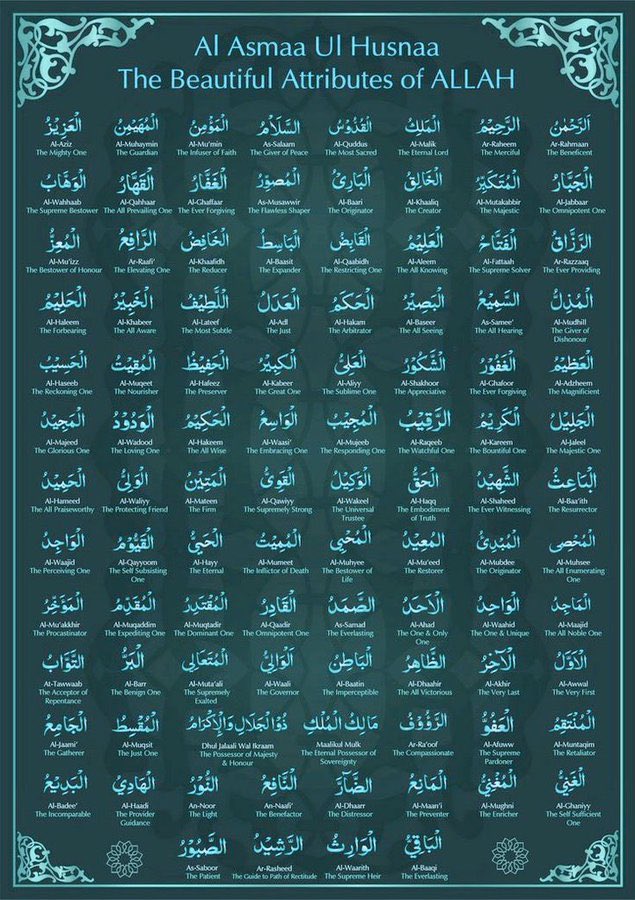 Al Asmaa Ul Husnaa
The Beautiful Attributes of ALLAH
اَلرَّحْمٰنُ
Ar-Rahmaan
The Beneficent
الرَّحِيْمُ
Ar-Raheem
The Merciful
الْمَلِكُ
Al-Malik
The Eternal Lord
الْقُدُّوْسُ
Al-Quddus
The Most Sacred
السَّلَامُ
As-Salaam
The Giver of Peace
الْمُؤْمِنُ
Al-Mu'min
The Infuser of Faith
الْمُهَيْمِنُ
Al-Muhaymin
The Guardian
الْعَزِيْزُ
Al-Aziz
The Mighty One
الْجَبَّارُ
Al-Jabbaar
The Omnipotent One
الْمُتَكَبِّرُ
Al-Mutakabbir
The Majestic
الْخَالِقُ
Al-Khaaliq
The Creator
الْبَارِئُ
Al-Baari
The Originator
الْمُصَوِّرُ
As-Musawwir
The Flawless Shaper
الْغَفَّارُ
Al-Ghaffaar
The Ever Forgiving
الْقَهَّارُ
Al-Qahhaar
The All Prevailing One
الْوَهَّابُ
Al-Wahhaab
The Supreme Bestower
الرَّزَّاقُ
Ar-Razzaaq
The Ever Providing
الْفَتَّاحُ
Al-Fattaah
The Supreme Solver
الْعَلِيْمُ
Al-Aleem
The All Knowing
الْقَابِضُ
Al-Qaabidh
The Restricting One
الْبَاسِطُ
Al-Baasit
The Expander
الْخَافِضُ
Al-Khaafidh
The Reducer
الرَّافِعُ
Ar-Raafi'
The Elevating One
الْمُعِزُّ
Al-Mu'izz
The Bestower of Honour
الْمُذِلُّ
Al-Mudhill
The Giver of
Dishonour
السَّمِيْعُ
As-Samee'
The All Hearing
الْبَصِيْرُ
Al-Baseer
The All Seeing
الْحَكَمُ
Al-Hakam
The Arbitrator
الْعَدْلُ
Al-Adl
The Just
اللَّطِيْفُ
Al-Lateef
The Most Subtle
الْخَبِيْرُ
Al-Khabeer
The All Aware
الْحَلِيْمُ
Al-Haleem
The Forbearing
الْعَظِيْمُ
Al-Adzheem
The Magnificient
الْغَفُوْرُ
Al-Ghafoor
The Ever Forgiving
الشَّكُوْرُ
Al-Shakhoor
The Appreciative
الْعَلِيُّ
Al-Aliyy
The Sublime One
الْكَبِيْرُ
Al-Kabeer
The Great One
الْحَفِيْظُ
Al-Hafeez
The Preserver
الْمُقِيْتُ
Al-Muqeet
The Nourisher
الْحَسِيْبُ
Al-Haseeb
The Reckoning One
الْجَلِيْلُ
Al-Jaleel
The Majestic One
الْكَرِيْمُ
Al-Kareem
The Bountiful One
الرَّقِيْبُ
Al-Raqeeb
The Watchful One
الْمُجِيْبُ
Al-Mujeeb
The Responding One
الْوَاسِعُ
Al-Waasi'
The Embracing One
الْحَكِيْمُ
Al-Hakeem
The All Wise
الْوَدُوْدُ
Al-Wadood
The Loving One
الْمَجِيْدُ
Al-Majeed
The Glorious One
الْبَاعِثُ
Al-Baa'ith
The Resurrector
الشَّهِيْدُ
Al-Shaheed
The Ever Witnessing
الْحَقُّ
Al-Haqq
The Embodiment
of Truth
الْوَكِيْلُ
Al-Wakeel
The Universal
Trustee
الْقَوِيُّ
Al-Qawiyy
The Supremely Strong
الْمَتِيْنُ
Al-Mateen
The Firm
الْوَلِيُّ
Al-Waliyy
The Protecting Friend
الْحَمِيْدُ
Al-Hameed
The All Praiseworthy
الْمُحْصِى
Al-Muhsee
The All Enumerating
One
الْمُبْدِئُ
Al-Mubdee
The Originator
الْمُعِيْدُ
Al-Mu'eed
The Restorer
الْمُحْيِى
Al-Muhyee
The Bestower of
Life
الْمُمِيْتُ
Al-Mumeet
The Inflictor of Death
الْحَيُّ
Al-Hayy
The Eternal
الْقَيُّوْمُ
Al-Qayyoom
The Self Subsisting
One
الْوَاجِدُ
Al-Waajid
The Perceiving One
الْمَاجِدُ
Al-Maajid
The All Noble One
الْوَاحِدُ
Al-Waahid
The One & Unique
الْاَحَدُ
Al-Ahad
The One & Only
One
الصَّمَدُ
As-Samad
The Everlasting
الْقَادِرُ
Al-Qaadir
The Omnipotent One
الْمُقْتَدِرُ
Al-Muqtadir
The Dominant One
الْمُقَدِّمُ
Al-Muqaddim
The Expediting One
الْمُؤَخِّرُ
Al-Mu'akkhir
The Procastinator
الْاَوَّلُ
Al-Awwal
The Very First
الْاٰخِرُ
Al-Akhir
The Very Last
الظَّاهِرُ
Al-Dhaahir
The All Victorious
الْبَاطِنُ
Al-Baatin
The Imperceptible
الْوَالِيْ
Al-Waali
The Governor
الْمُتَعَالِي
Al-Muta'ali
The Supremely
Exalted
الْبَرُّ
Al-Barr
The Benign One
التَّوَّابُ
At-Tawwaab
The Acceptor of
Repentance
الْمُنْتَقِمُ
Al-Muntaqim
The Retaliator
الْعَفُوُّ
Al-Afuww
The Supreme
Pardoner
الرَّؤُوْفُ
Ar-Ra'oof
The Compassionate
مَالِكُ الْمُلْكِ
Maalikul Mulk
The Eternal Possessor of
Sovereignty
ذُو الْجَلَالِ وَالْاِكْرَامِ
Dhul Jalaali Wal Ikraam
The Possessor of Majesty
& Honour
الْمُقْسِطُ
Al-Muqsit
The Just One
الْجَامِعُ
Al-Jaami'
The Gatherer
الْغَنِيُّ
Al-Ghaniyy
The Self Sufficient
One
الْمُغْنِيُّ
Al-Mughni
The Enricher
الْمَانِعُ
Al-Maan'i
The Preventer
الضَّآرُّ
Al-Dhaarr
The Distressor
النَّافِعُ
An-Naafi'
The Benefactor
النُّوْرُ
An-Noor
The Light
الْهَادِيُ
Al-Haadi
The Provider
Guidance
الْبَدِيْعُ
Al-Badee'
The Incomparable
الْبَاقِيُ
Al-Baaqi
The Everlasting
الْوَارِثُ
Al-Waarith
The Supreme Heir
الرَّشِيْدُ
Ar-Rasheed
The Guide to Path of Rectitude
الصَّبُوْرُ
As-Saboor
The Patient